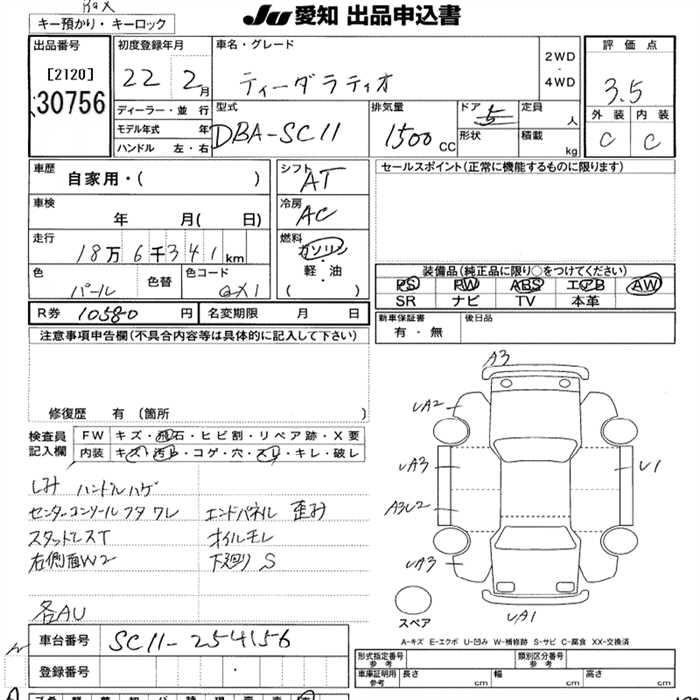 キー預かり・キーロック
JU 愛知 出品申込書
出品番号
[2120]
30756
初度登録年月
22 2月
車名・グレード
ティーダラティオ
2WD
・
4WD
評価点
3.5
外装 内装
C C
ディーラー・並行
モデル年式 年
ハンドル 左・右
型式
DBA-SC11
排気量
1500 CC
ドア 5
形状
定員 人
積載 kg
車歴
自家用・( )
車検
年 月( 日)
走行
18万6千341km
色
パール
色替
色コード
QX1
シフト
AT
冷房
AC
燃料
ガソリン
・
軽・油
( )
セールスポイント(正常に機能するものに限ります)
装備品(純正品に限り○をつけてください)
PS PW ABS エアB AW
SR ナビ TV 本革
R券 10580 円
名変期限 月 日
新車保証書
有・無
後日品
注意事項申告欄(不具合内容等は具体的に記入して下さい)
修復歴 有 (箇所 )
検査員
記入欄
FW キズ・飛石・ヒビ割・リペア跡・X要
内装 キズ・汚れ・コゲ・穴・スレ・キレ・破レ
シミ ハンドルハゲ
センターコンソールフタ ワレ エンドパネル 歪み
スタットレスT オイルモレ
右側面W2 下廻り S
各AU
A3
UA2
UA3
U1
A3U2
UA3
UA1
スペア
A-キズ E-エクボ U-凹み W-補修跡 S-サビ C-腐食 XX-交換済
車台番号 SC11-254156
登録番号
型式指定番号
参考
類別区分番号
参考
車庫証明用
参考
長さ cm
幅 cm
高さ cm